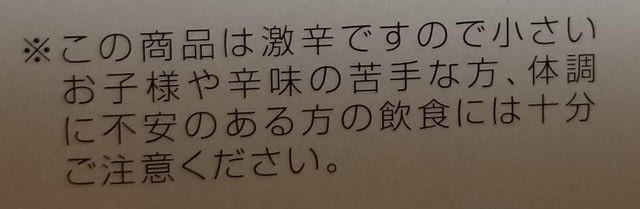 ※この商品は激辛ですので小さい
お子様や辛味の苦手な方、体調
に不安のある方の飲食には十分
ご注意ください。